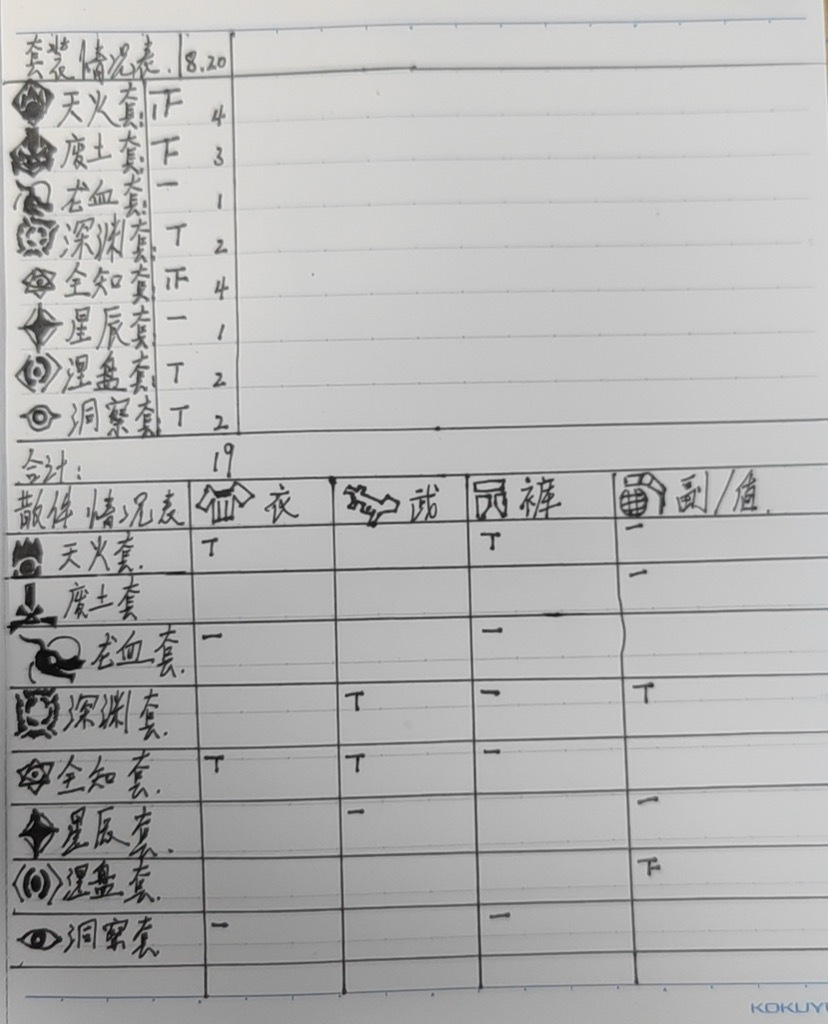 套装情况表. 8.20
天火套: 4
废土套: 下 3
龙血套: 一 1
深渊套: T 2
全知套: 4
星辰套: 一 1
涅盘套: T 2
洞察套: T 2
合计: 19
散件情况表 衣 武 裤 副/值.
天火套. T T 一
废土套 一
龙血套. 一 一
深渊套. T 一 T
全知套. T T 一
星辰套. 一 一
涅盘套. 下
洞察套 一 一
KOKUYO